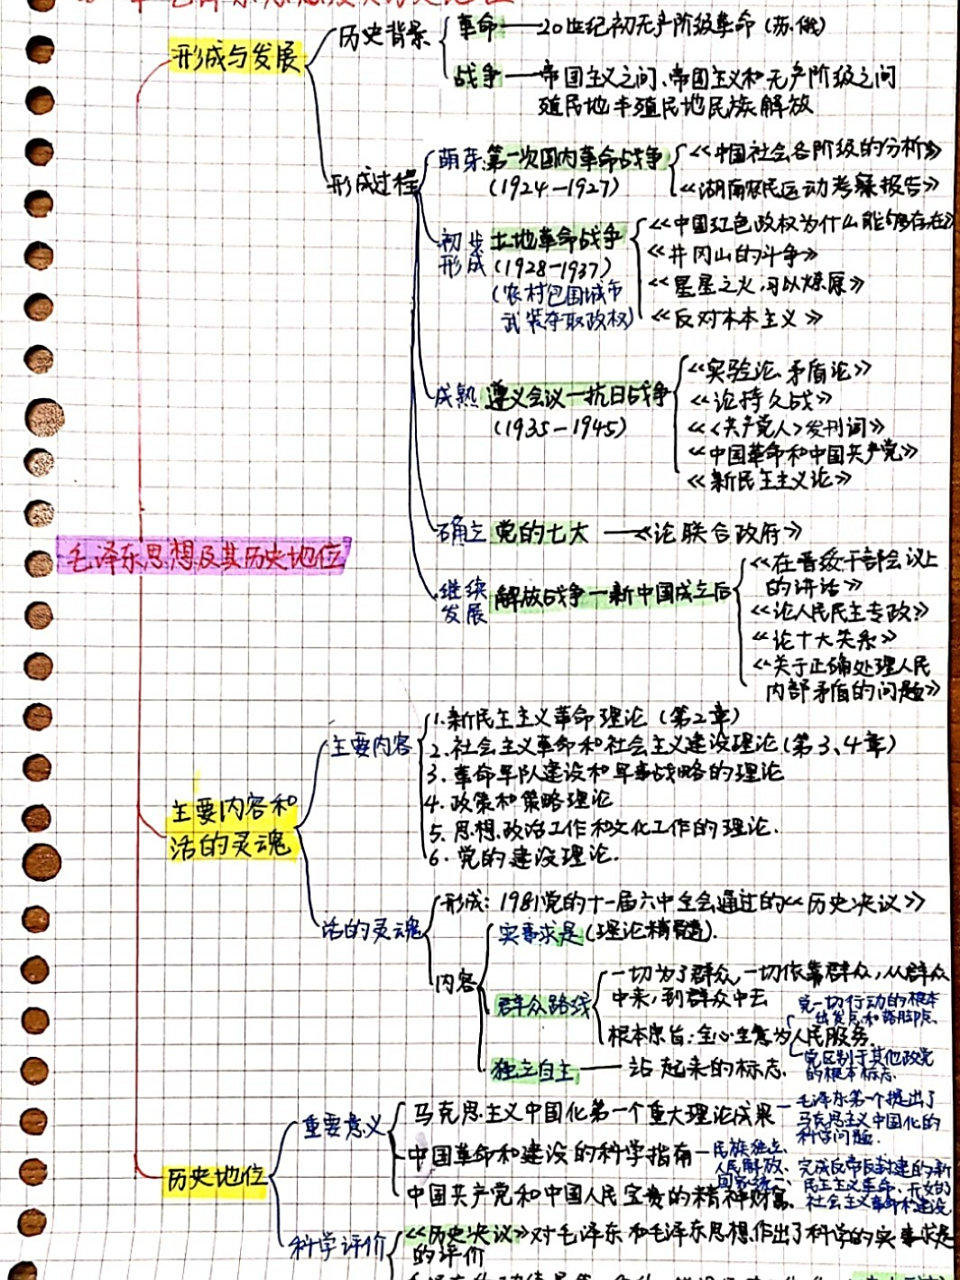 毛泽东思想及其历史地位
形成与发展
历史背景
革命——20世纪初无产阶级革命（苏.俄）
战争——帝国主义之间、帝国主义和无产阶级之间
殖民地半殖民地民族解放
形成过程
萌芽:第一次国内革命战争
（1924—1927）
《中国社会各阶级的分析》
《湖南农民运动考察报告》
初步
形成
土地革命战争
（1928-1937）
（农村包围城市
武装夺取政权）
《中国红色政权为什么能够存在》
《井冈山的斗争》
《星星之火,可以燎原》
《反对本本主义》
成熟
遵义会议—抗日战争
（1935—1945）
《实验论、矛盾论》
《论持久战》
《〈共产党人〉发刊词》
《中国革命和中国共产党》
《新民主主义论》
确立 党的七大 ——《论联合政府》
继续
发展
解放战争—新中国成立后
《在晋绥干部会议上
的讲话》
《论人民民主专政》
《论十大关系》
《关于正确处理人民
内部矛盾的问题》
毛泽东思想及其历史地位
主要内容和
活的灵魂
主要内容
1.新民主主义革命理论（第2章）
2.社会主义革命和社会主义建设理论（第3、4章）
3.革命军队建设和军事战略的理论
4.政策和策略理论
5.思想政治工作和文化工作的理论.
6.党的建设理论.
活的灵魂
形成：1981党的十一届六中全会通过的《历史决议》
内容
实事求是（理论精髓）.
群众路线
一切为了群众,一切依靠群众,从群众
中来,到群众中去
党一切行动的根本
出发点和落脚点.
根本宗旨：全心全意为人民服务.
党区别于其他政党
的根本标志.
独立自主——站起来的标志.
历史地位
重要意义
马克思主义中国化第一个重大理论成果
毛泽东第一个提出了
马克思主义中国化的
科学问题.
中国革命和建设的科学指南
民族独立、
人民解放、
国家统一、
完成反帝反封建的新
民主主义革命、开始的
社会主义革命和建设
中国共产党和中国人民宝贵的精神财富.
科学评价
《历史决议》对毛泽东和毛泽东思想作出了科学的实事求是
的评价